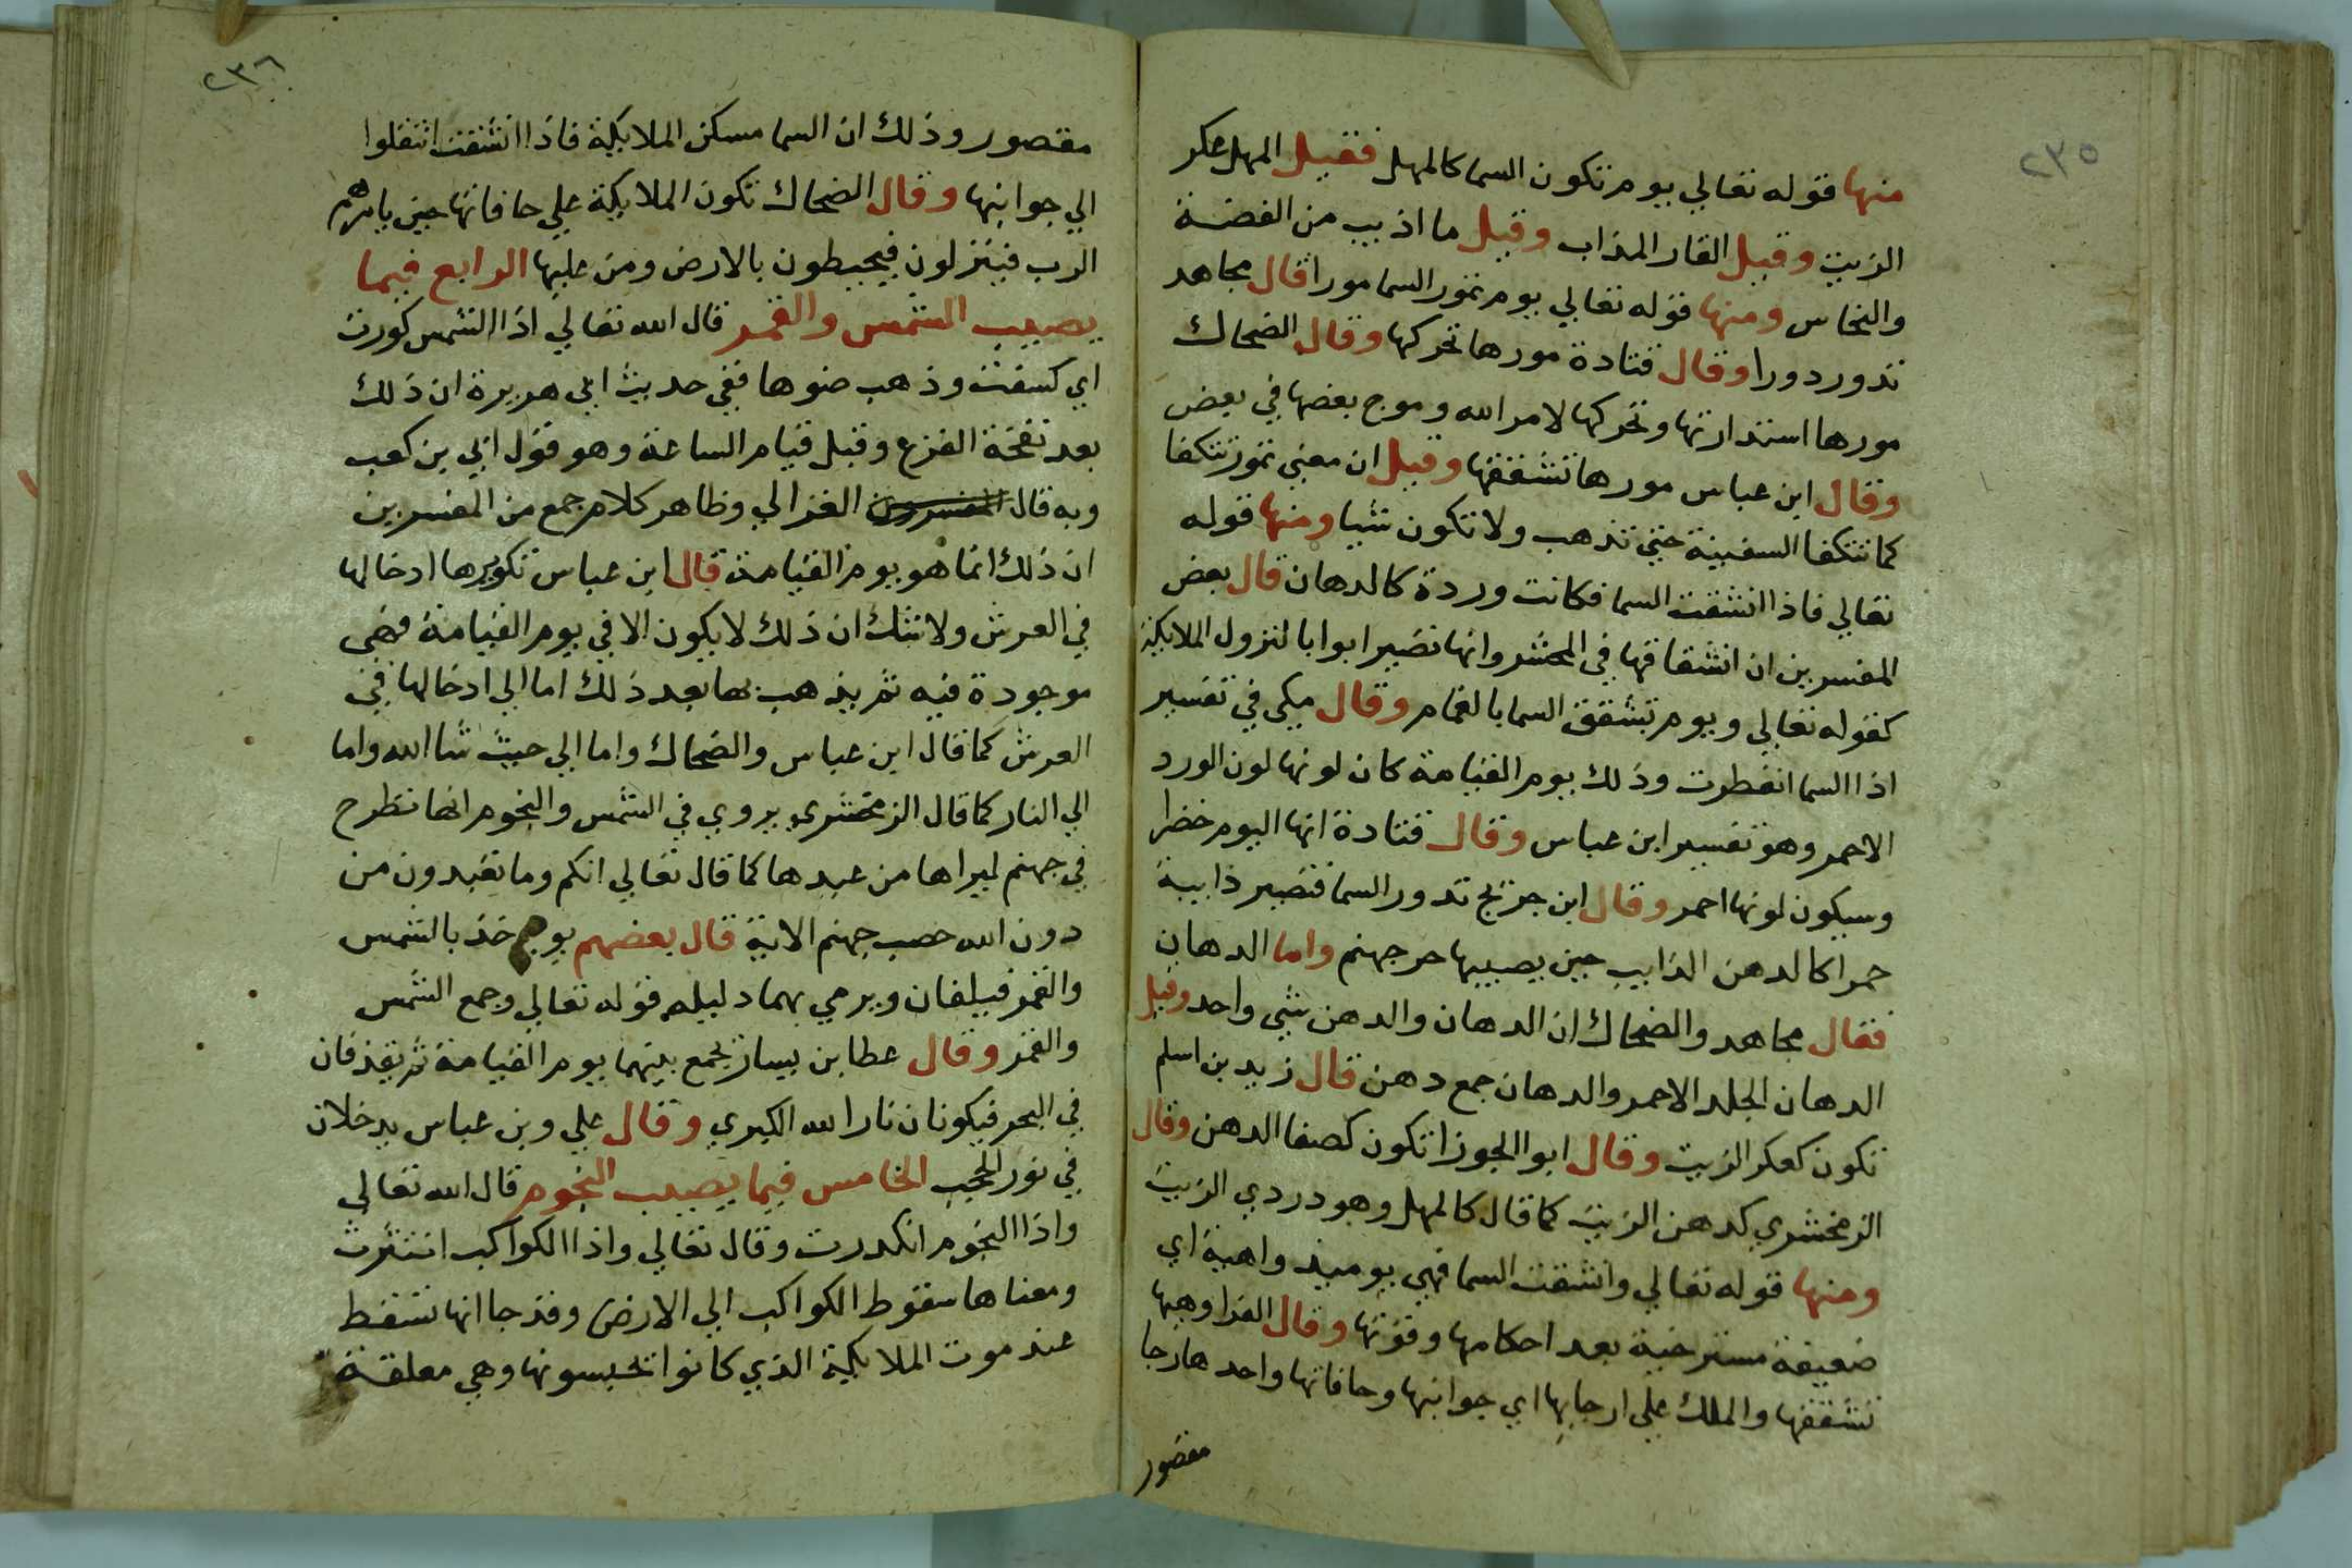 ٢٣٥
منها قوله تعالي يوم تكون السما كالمهل فقيل المهل عكر
الزيت وقيل القار المذاب وقيل ما اذيب من الفضة
والنحاس ومنها قوله تعالي يوم تمور السما مورا قال مجاهد
تدور دورا وقال قتادة مورها تحركها وقال الضحاك
مورها استدارتها وتحركها لامر الله وموج بعضها في بعض
وقال ابن عباس مورها تشققها وقيل ان معني تمور تتكفا
كما تتكفا السفينة حتي تذهب ولا تكون شيا ومنها قوله
تعالي فاذا انشقت السما فكانت وردة كالدهان قال بعض
المفسرين ان انشقاقها في المحشر وانها تصير ابوابا لنزول الملايكة
كقوله تعالي ويوم تشقق السما بالغمام وقال مكي في تفسير
اذا السما انفطرت وذلك يوم القيامة كان لونها لون الورد
الاحمر وهو تفسير ابن عباس وقال قتادة انها اليوم خضرا
وسيكون لونها احمر وقال ابن جريج تدور السما فتصير ذايبة
حمرا كالدهن الذايب حين يصيبها حر جهنم واما الدهان
فقال مجاهد والضحاك ان الدهان والدهن شي واحد وقيل
الدهان الجلد الاحمر والدهان جمع دهن قال زيد بن اسلم
تكون كعكر الزيت وقال ابوا الجوزا تكون كصفا الدهن وقال
الزمخشري كدهن الزيت كما قال كالمهل وهو دردي الزيت
ومنها قوله تعالي وانشقت السما فهي يوميذ واهية اي
ضعيفة مسترخية بعد احكامها وقوتها وقال الفرا وهيها
تشققها والملك علي ارجايها اي جوانبها وحافاتها واحدها رجا
مقصور
٢٣٦
مقصور وذلك ان السما مسكن الملايكة فاذا انشقت انتقلوا
الي جوانبها وقال الضحاك تكون الملايكة علي حافاتها حين يامرهم
الرب فينزلون فيحيطون بالارض ومن عليها الرابع فيما
يصيب الشمس والقمر قال الله تعالي اذا الشمس كورت
اي كسفت وذهب ضوها ففي حديث ابي هريرة ان ذلك
بعد نفخة الفزع وقبل قيام الساعة وهو قول ابي بن كعب
وبه قال المفسرون الغزالي وظاهر كلام جمع من المفسرين
ان ذلك انما هو يوم القيامة قال ابن عباس تكويرها ادخالها
في العرش ولا شك ان ذلك لا يكون الا في يوم القيامة فهي
موجودة فيه ثم يذهب بها بعد ذلك اما الي ادخالها في
العرش كما قال ابن عباس والضحاك واما الي حيث شا الله واما
الي النار كما قال الزمخشري يروي في الشمس والنجوم انها تطرح
في جهنم ليراها من عبدها كما قال تعالي انكم وما تعبدون من
دون الله حصب جهنم الاية قال بعضهم يوخذ بالشمس
والقمر فيلفان ويرمي بهما دليله قوله تعالي وجمع الشمس
والقمر وقال عطا بن يسار يجمع بينهما يوم القيامة ثم يقذفان
في البحر فيكونان نار الله الكبري وقال علي وبن عباس يدخلان
في نور الحجب الخامس فيما يصيب النجوم قال الله تعالي
واذا النجوم انكدرت وقال تعالي واذا الكواكب انتثرت
ومعناها سقوط الكواكب الي الارض وقد جا انها تسقط
عند موت الملايكة الذي كانوا تحبسونها وهي معلقة